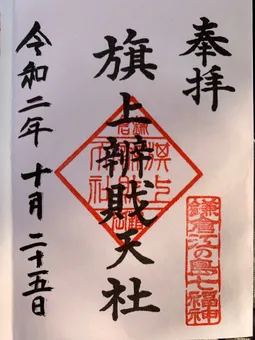 奉拝
旗上辨戝天社
令和二年十月二十五日
鎌倉江の島七福神